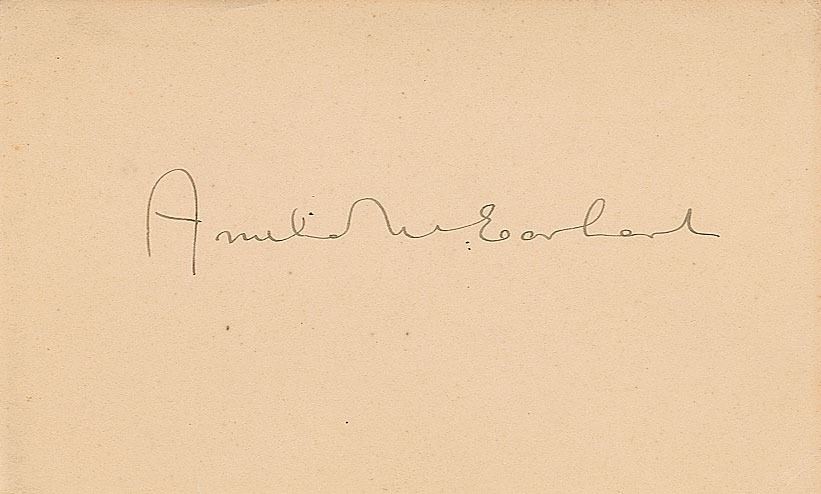 Amelia M. Earhart